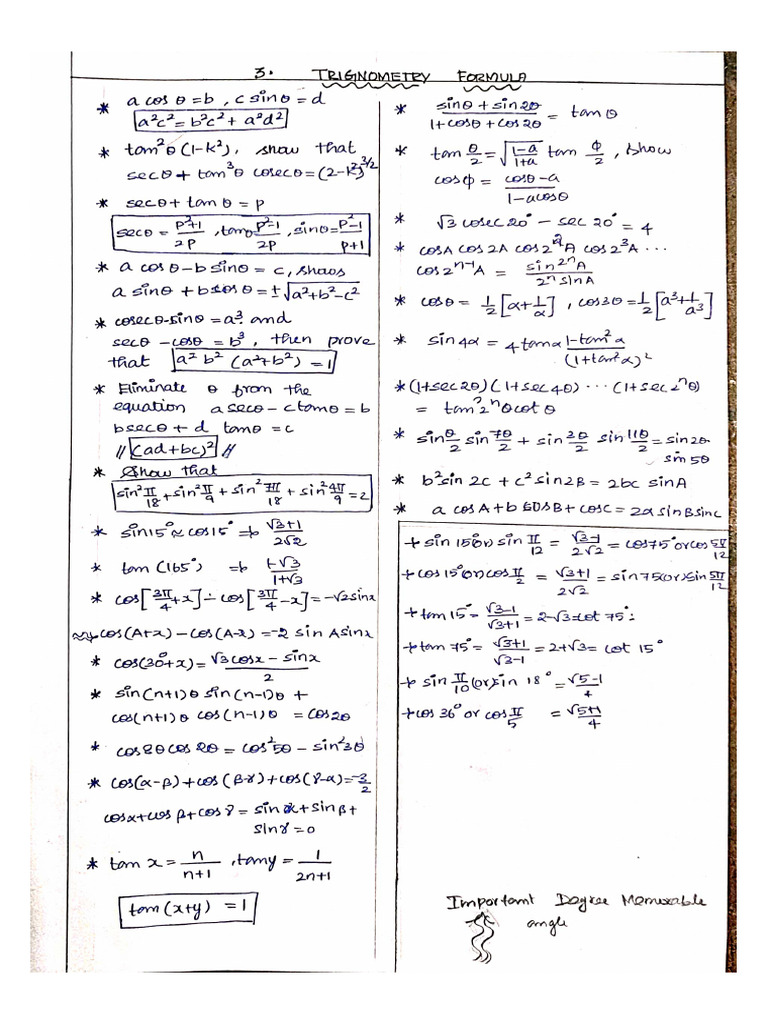 3. TRIGNOMETRY FORMULA
* a cos θ = b , c sinθ = d
a²c² = b²c² + a²d²
* tan²θ (1-k²), show that
secθ + tan³θ cosecθ = (2-k²)^3/2
* secθ + tan θ = p
secθ = p²+1/2p , tanθ = p²-1/2p , sinθ = p²-1/p+1
* a cos θ - b sinθ = c, shows
a sinθ + b cosθ = ± √a²+b²-c²
* cosecθ-sinθ = a³ and
secθ - cosθ = b³ , then prove
that a² b² (a²+b²) = 1
* Eliminate θ from the
equation a secθ - c tanθ = b
b secθ + d tanθ = c
// (ad+bc)² //
* Show that
sin² π/18 + sin² π/9 + sin² 7π/18 + sin² 4π/9 = 2
* sin15° ≈ cos15° ⇒ √3+1/2√2
* tan (165°) ⇒ 1-√3/1+√3
* cos[3π/4 + x] - cos[3π/4 - x] = -√2 sinx
cos(A+x) - cos(A-x) = -2 sin A sinx
* cos(30°+x) = √3 cosx - sinx/2
* sin(n+1)θ sin(n-1)θ +
cos(n+1)θ cos(n-1)θ = cos2θ
* cos8θ cos 2θ = cos²5θ - sin²3θ
* cos(α-β) + cos(β-γ) + cos(γ-α) = -3/2
cosα + cos β + cos γ = sin α + sin β +
sin γ = 0
* tan x = n/n+1 , tan y = 1/2n+1
tan (x+y) = 1
* sinθ + sin2θ/1+cosθ+cos2θ = tan θ
* tan θ/2 = √1-a/1+a tan Φ/2 , show
cosΦ = cosθ-a/1-acosθ
* √3 cosec20° - sec 20° = 4
* cosA cos 2A cos2²A cos 2³A ...
cos 2ⁿ⁻¹A = sin 2ⁿA/2ⁿ sinA
* cosθ = 1/2 [a+1/a] , cos3θ = 1/2 [a³+1/a³]
* sin4α = 4tanα 1-tan²α/(1+tan²α)²
* (1+sec2θ) (1+sec 4θ) ... (1+sec 2ⁿθ)
= tan 2ⁿ θ cot θ
* sin θ/2 sin 7θ/2 + sin 3θ/2 sin 11θ/2 = sin 2θ
sin 5θ
* b² sin 2C + c² sin2B = 2bc sinA
* a cosA + b cosB + cosC = 2a sinB sinC
+ sin 15° (or) sin π/12 = √3-1/2√2 = cos75° or cos 5π/12
+ cos 15° (or) cos π/2 = √3+1/2√2 = sin75 (or) sin 5π/12
+ tan 15° = √3-1/√3+1 = 2-√3 = cot 75°
+ tan 75° = √3+1/√3-1 = 2+√3 = cot 15°
+ sin π/10 (or) sin 18° = √5-1/4
+ cos 36° or cos π/5 = √5+1/4
Important Degree Memorable
angle